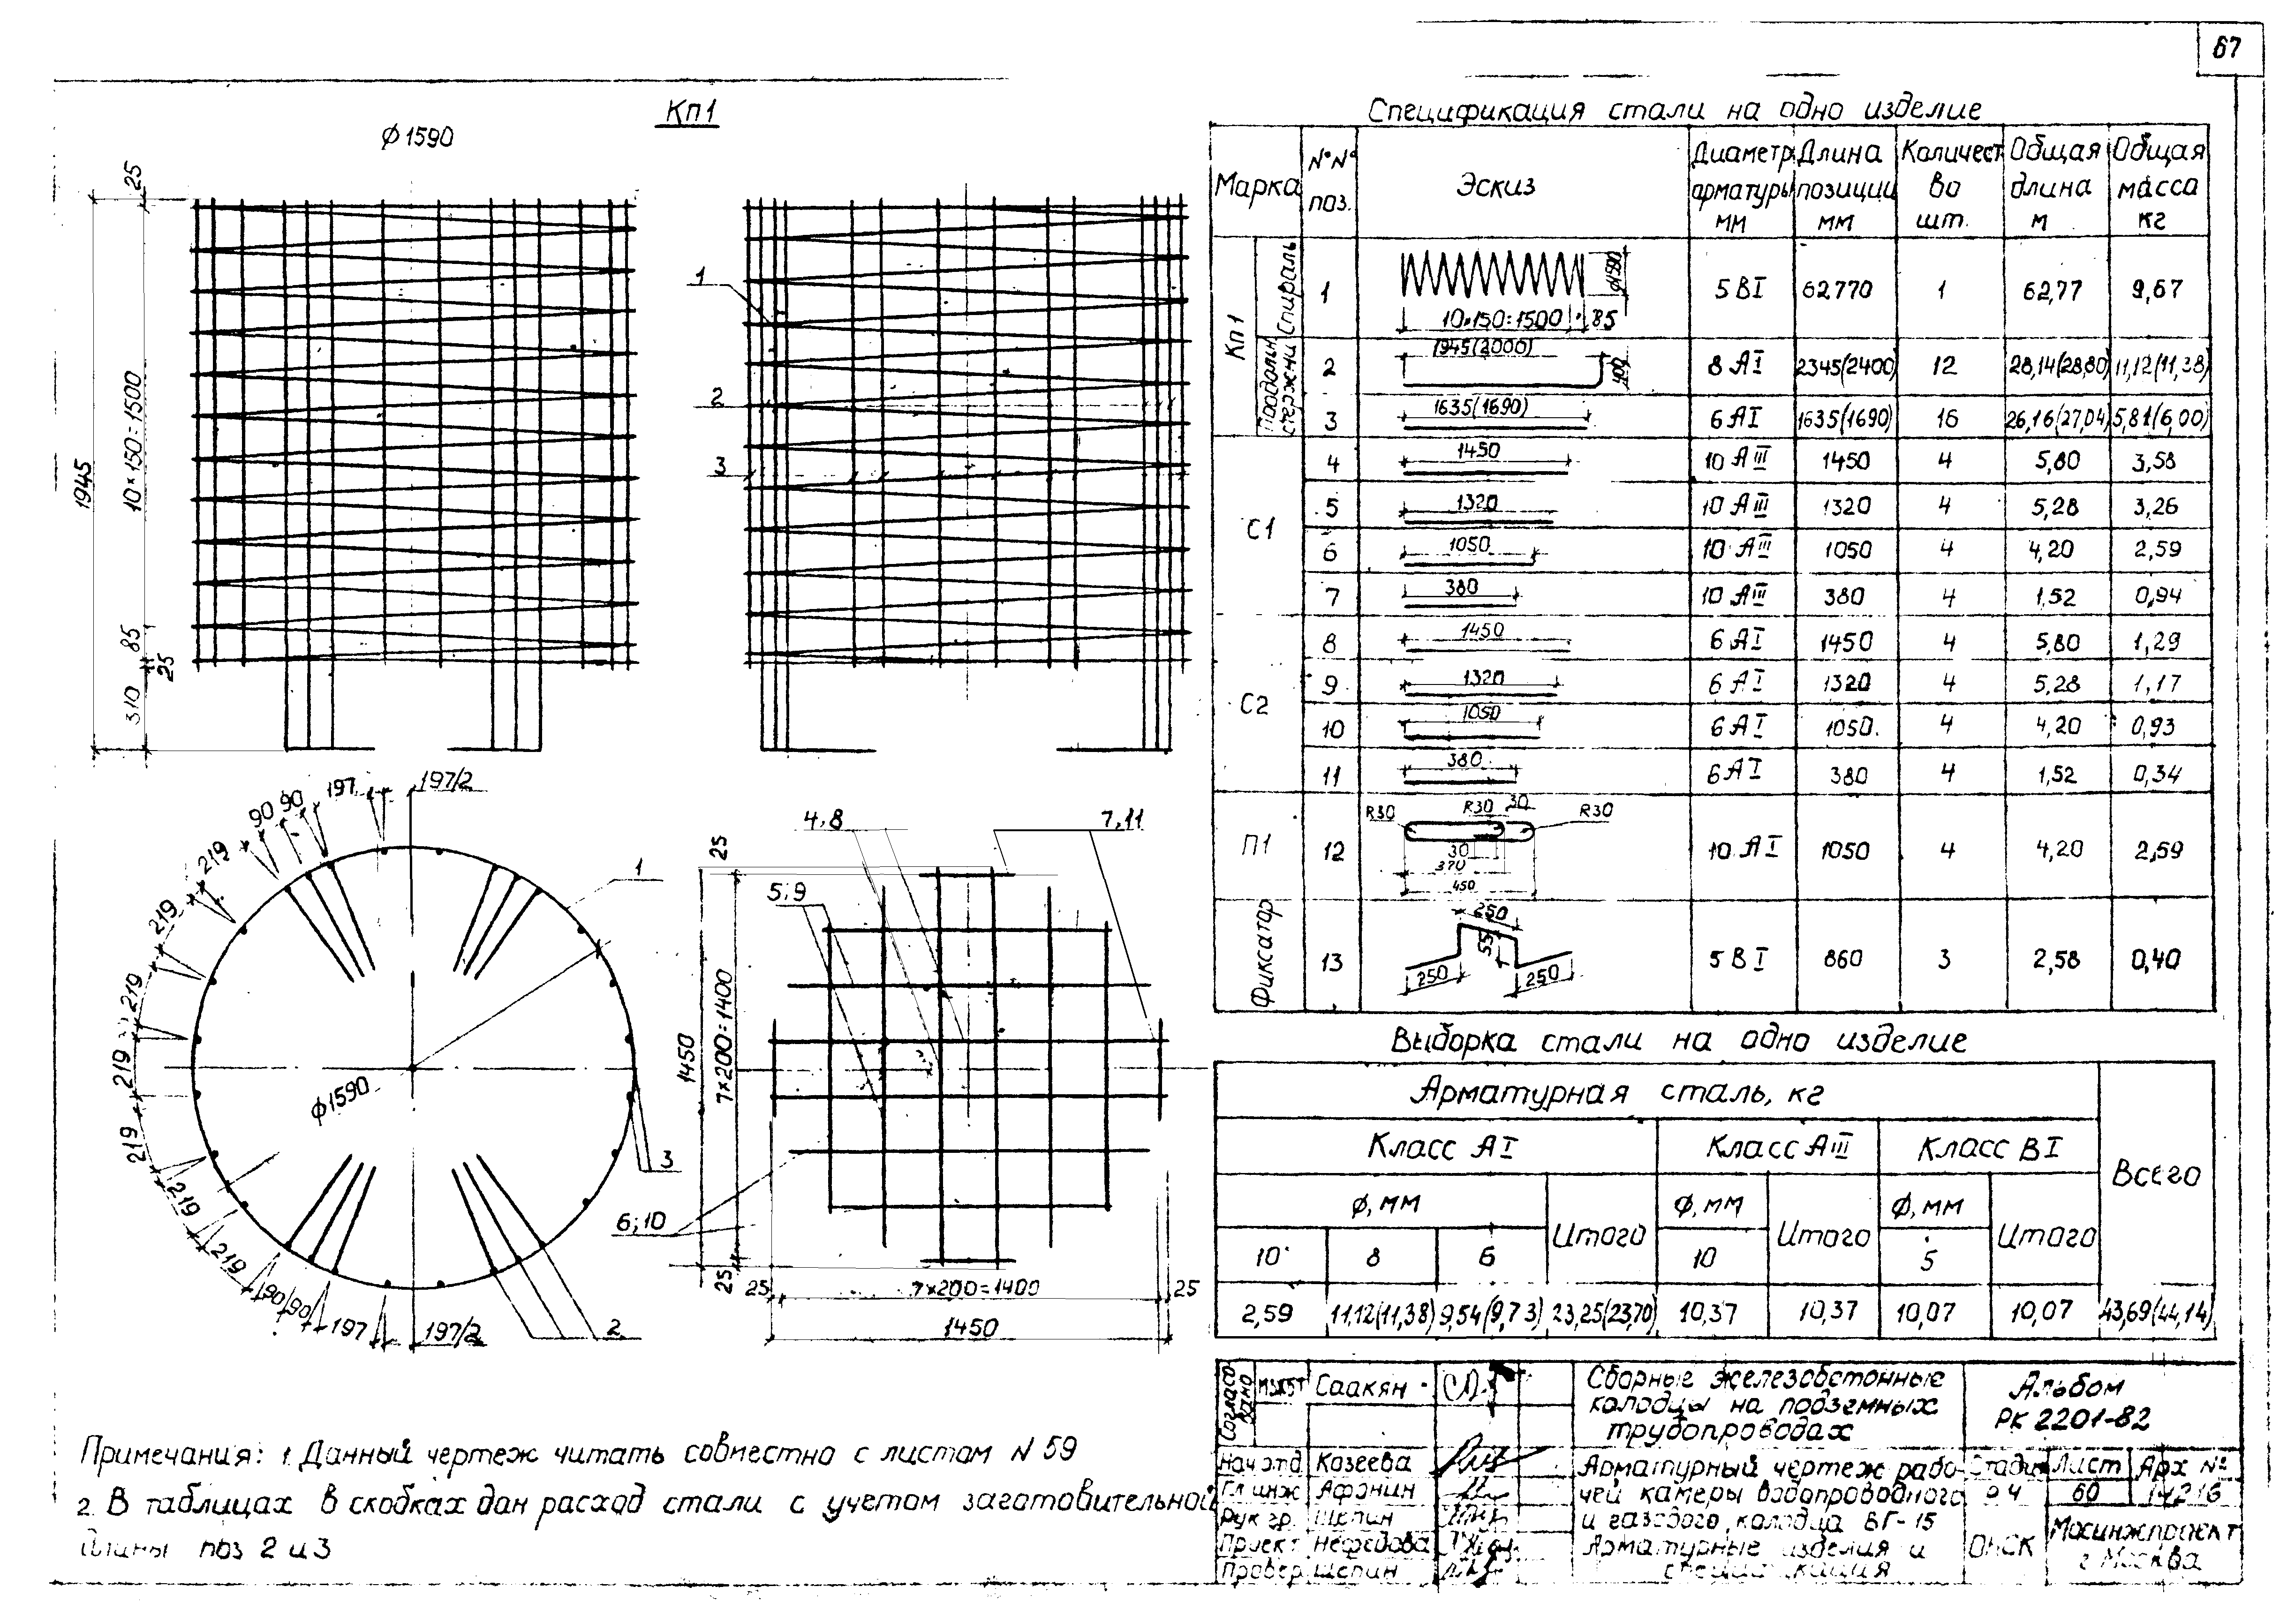 67
Кп1
ϕ1590
25
10×150=1500
1945
85
25
310
1
2
3
197/2
197
90
90
219
219
219
219
219
219
219
219
90
90
197
197/2
ϕ1590
1
3
2
4,8
7,11
5;9
6;10
25
7×200=1400
1450
25
25
7×200=1400
25
1450
Спецификация стали на одно изделие
Марка | №№ поз. | Эскиз | Диаметр арматуры мм | Длина позиции мм | Количество шт. | Общая длина м | Общая масса кг
Кп1 | Спираль | 1 | ϕ1590 10×150=1500 85 | 5 ВI | 62770 | 1 | 62,77 | 9,67
Продольн. стержни | 2 | 1945(2000) 400 | 8 АI | 2345(2400) | 12 | 28,14(28,80) | 11,12(11,38)
3 | 1635(1690) | 6 АI | 1635(1690) | 16 | 26,16(27,04) | 5,81(6,00)
С1 | 4 | 1450 | 10 АIII | 1450 | 4 | 5,80 | 3,58
5 | 1320 | 10 АIII | 1320 | 4 | 5,28 | 3,26
6 | 1050 | 10 АIII | 1050 | 4 | 4,20 | 2,59
7 | 380 | 10 АIII | 380 | 4 | 1,52 | 0,94
С2 | 8 | 1450 | 6 АI | 1450 | 4 | 5,80 | 1,29
9 | 1320 | 6 АI | 1320 | 4 | 5,28 | 1,17
10 | 1050 | 6 АI | 1050 | 4 | 4,20 | 0,93
11 | 380 | 6 АI | 380 | 4 | 1,52 | 0,34
П1 | 12 | R30 R30 30 R30 30 370 450 | 10 АI | 1050 | 4 | 4,20 | 2,59
Фиксатор | 13 | 250 55 250 250 | 5 ВI | 860 | 3 | 2,58 | 0,40
Выборка стали на одно изделие
Арматурная сталь, кг | Всего
Класс АI | Класс АIII | Класс ВI
ϕ, мм | Итого | ϕ, мм | Итого | ϕ, мм | Итого
10 | 8 | 6 | 10 | 5
2,59 | 11,12(11,38) | 9,54(9,73) | 23,25(23,70) | 10,37 | 10,37 | 10,07 | 10,07 | 43,69(44,14)
Примечания: 1. Данный чертеж читать совместно с листом N 59
2. В таблицах в скобках дан расход стали с учетом заготовительной
длины поз 2 и 3
Согласовано | Саакян
Нач отд | Казеева
Гл инж | Афонин
Рук гр. | Щепин
Проект | Нефедова
Провер | Щепин
Сборные железобетонные
колодцы на подземных
трубопроводах
Арматурный чертеж рабо-
чей камеры водопроводного
и газового колодца ВГ-15
Арматурные изделия и
спецификация
Альбом
РК 2201-82
Стадия | Лист | Арх №
РЧ | 60
ОНСК | Мосинжпроект
г Москва